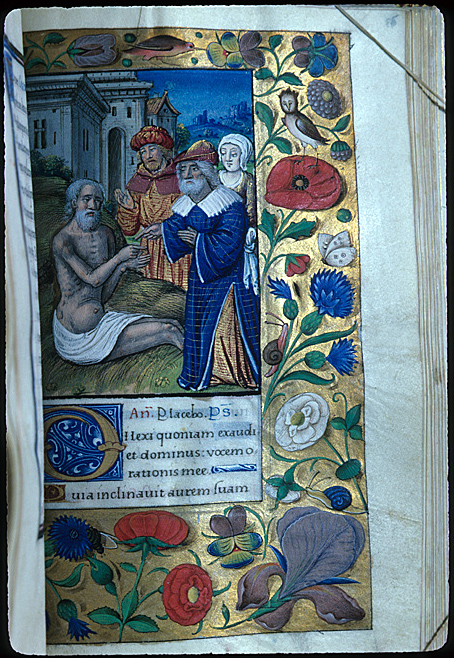 An. Placebo. Ps.
Dilexi quoniam exaudi
et dominus: vocem o
rationis mee.
Quia inclinavit aurem suam